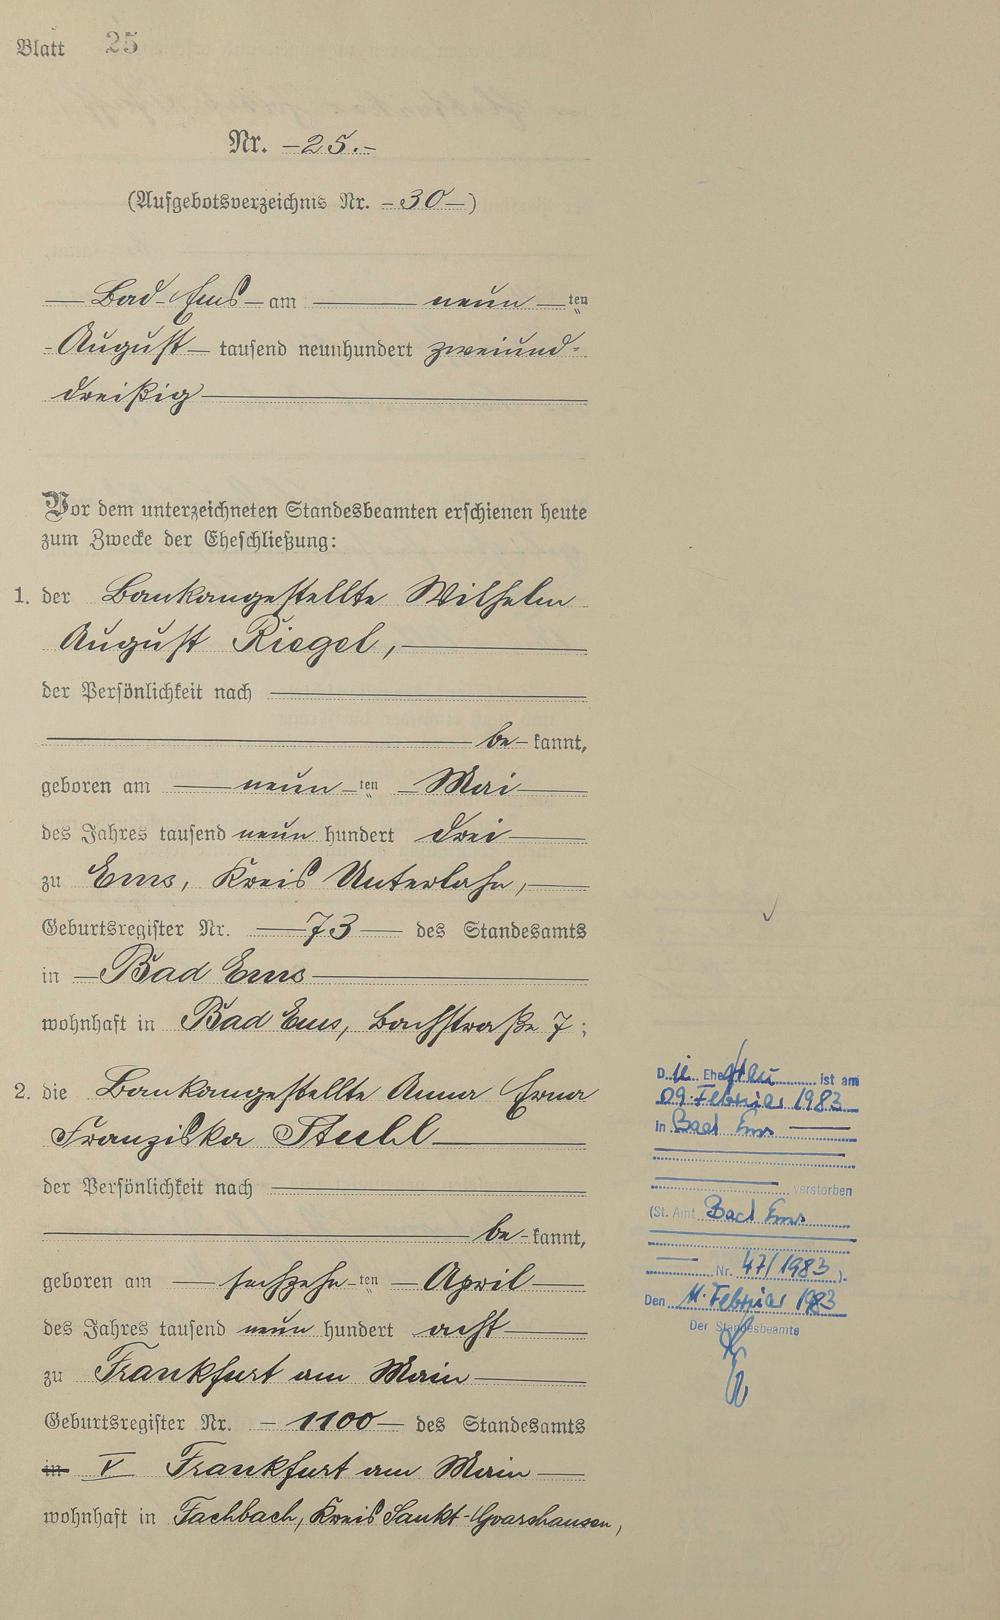 Blatt 25
Nr. -25.-
(Aufgebotsverzeichnis Nr. -30-)
Bad-Ems am neun ten
August tausend neunhundert zweiund-
dreißig
Vor dem unterzeichneten Standesbeamten erschienen heute
zum Zwecke der Eheschließung:
1. der Bankangestellte Wilhelm
August Riegel,
der Persönlichkeit nach
be- kannt,
geboren am neun ten Mai
des Jahres tausend neun hundert drei
zu Ems, Kreis Unterlahn,
Geburtsregister Nr. 73 des Standesamts
in Bad Ems
wohnhaft in Bad Ems, Bachstraße 7;
2. die Bankangestellte Anna Erna
Franziska Stuhl
der Persönlichkeit nach
be- kannt,
geboren am sechzehn ten April
des Jahres tausend neun hundert acht
zu Frankfurt am Main
Geburtsregister Nr. - 1100 - des Standesamts
in V Frankfurt am Main
wohnhaft in Fachbach, Kreis Sankt-Goarshausen,
Die Ehefrau ist am
09. Februar 1983
in Bad Ems
verstorben
(St. Amt Bad Ems
Nr. 47/1983).
Den 11. Februar 1983
Der Standesbeamte